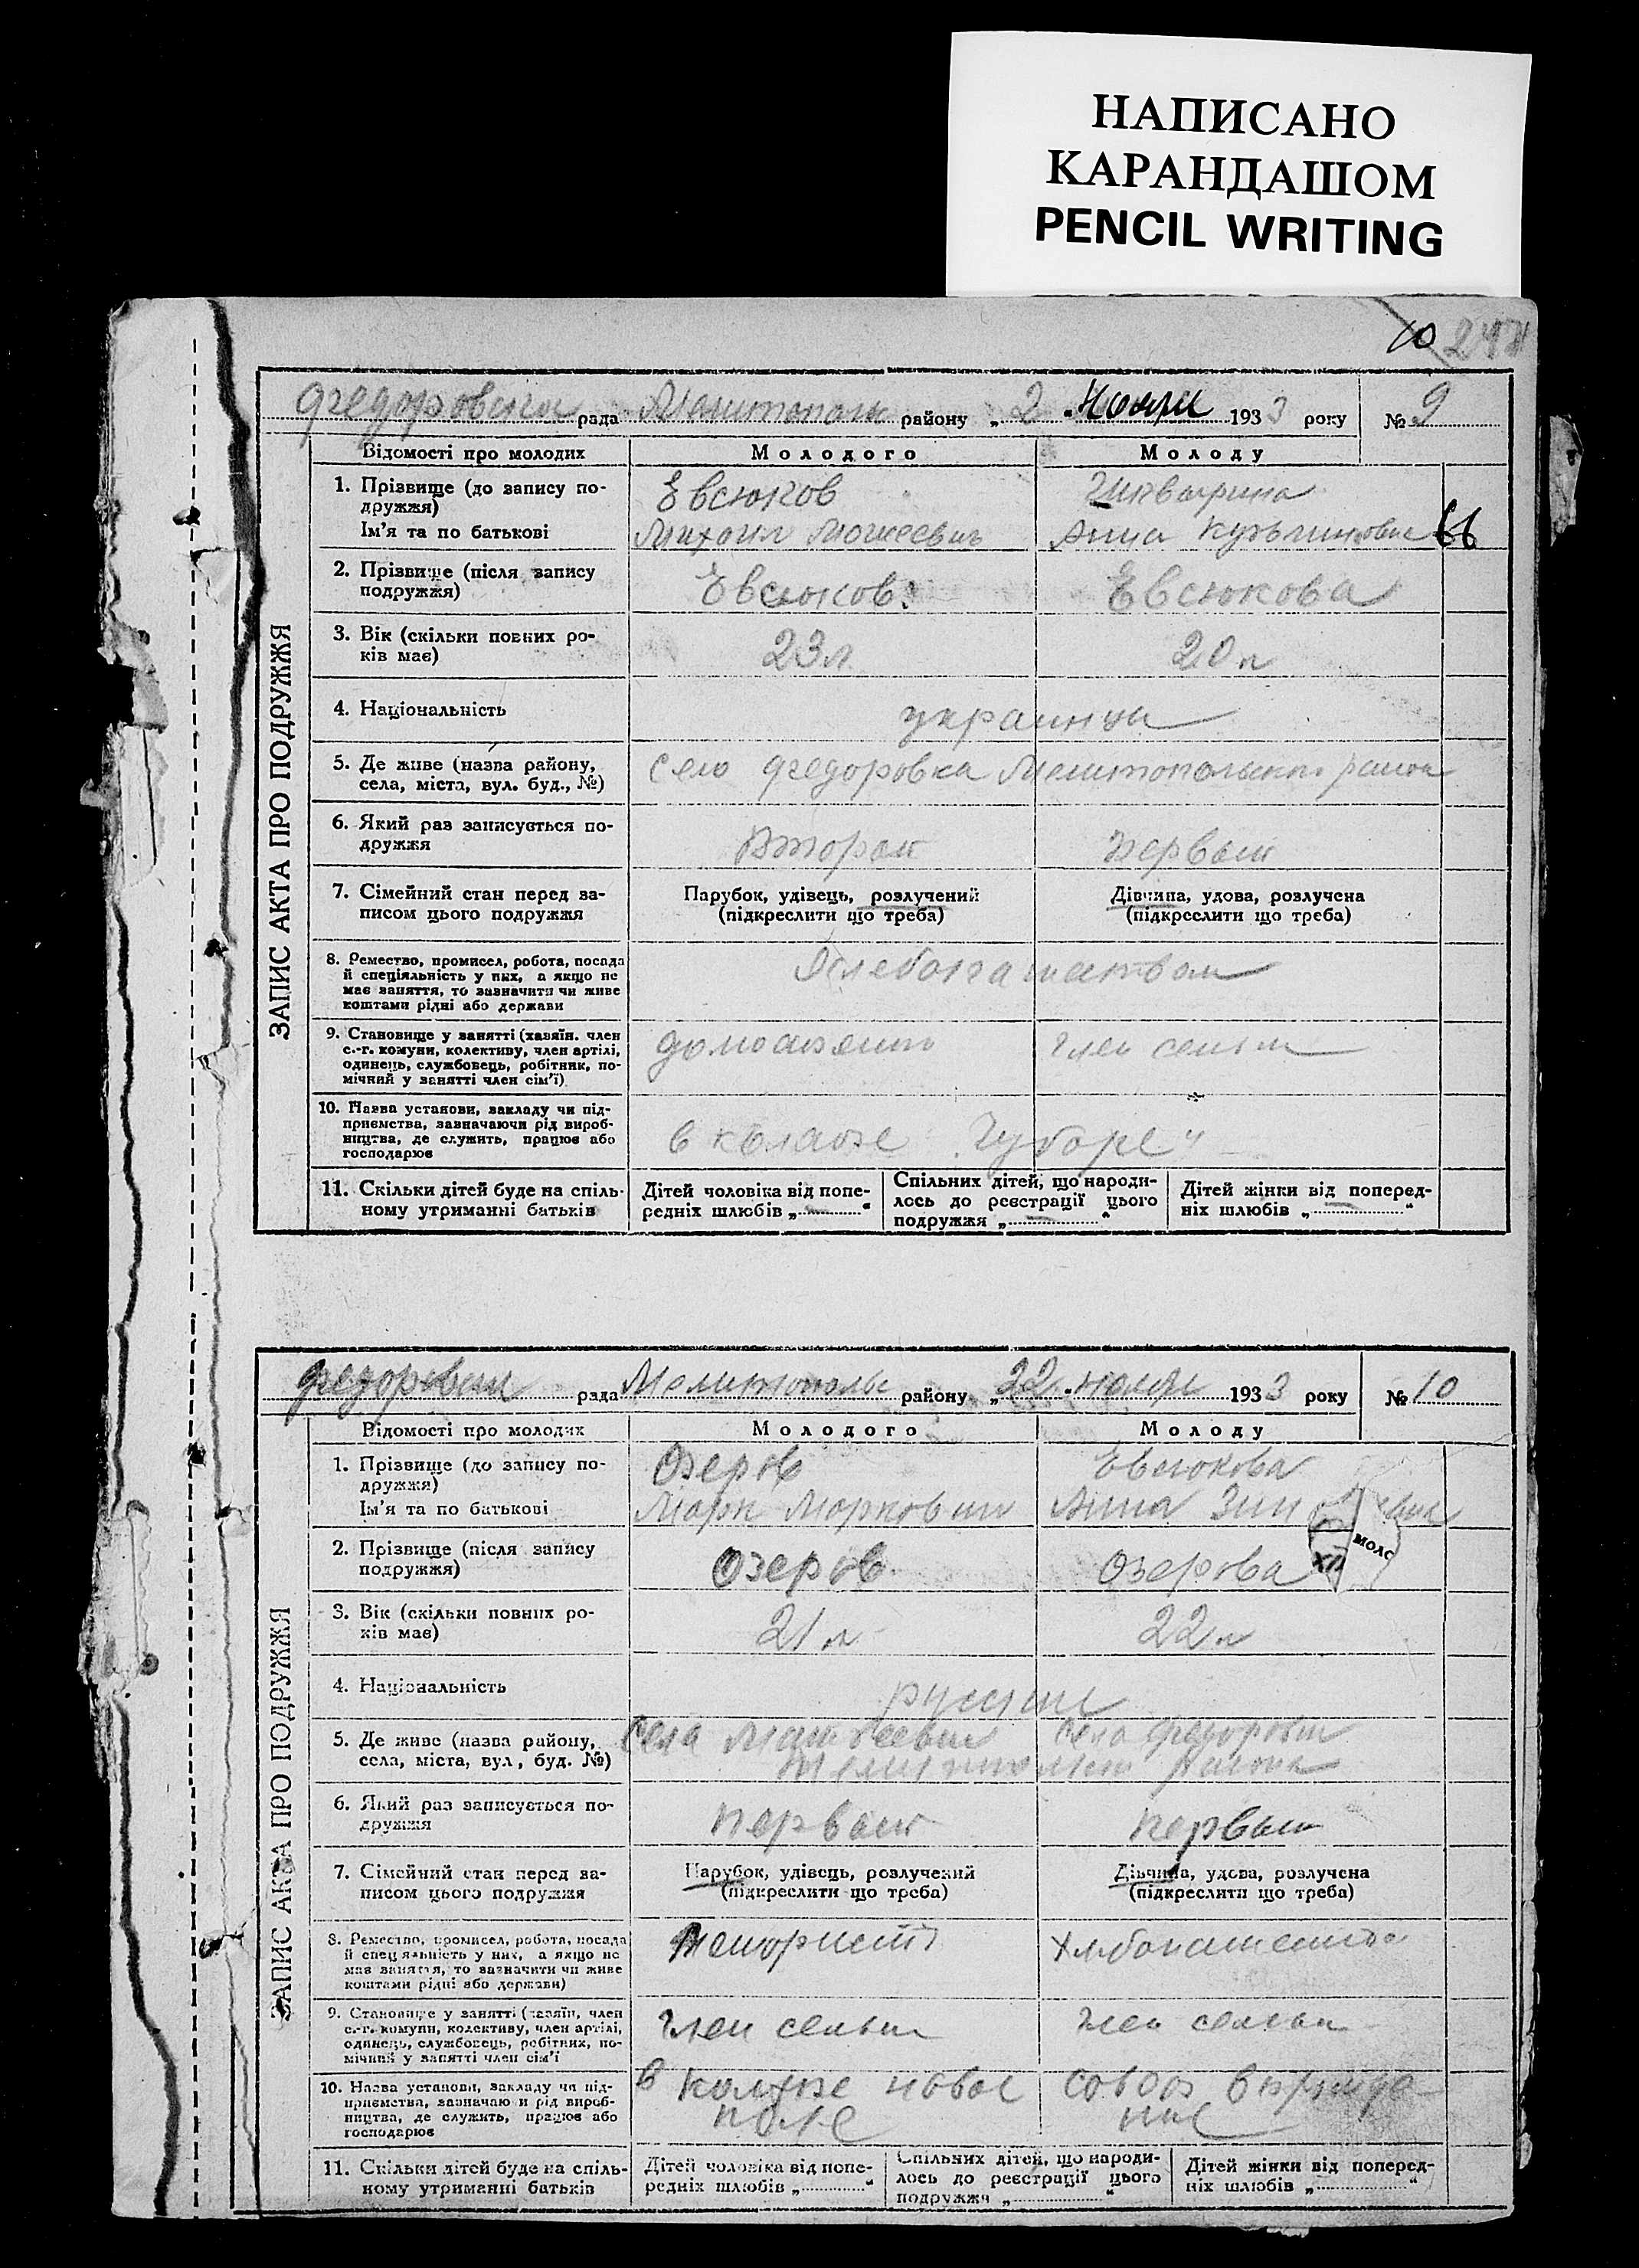 НАПИСАНО
КАРАНДАШОМ
PENCIL WRITING
10
рада Мелитополь району „2" Ноября 1933 року № 9
ЗАПИС АКТА ПРО ПОДРУЖЖЯ
Відомості про молодих Молодого Молоду
1. Прізвище (до запису по- Евсюков
дружжя)
Ім'я та по батькові Михаил Анна
66
2. Прізвище (після запису Евсюков Евсюкова
подружжя)
3. Вік (скільки повних ро- 23 л 20 л
ків має)
4. Національність украинцы
5. Де живе (назва району, Село Федоровка Мелитопольского района
села, міста, вул. буд., №)
6. Який раз записується по- Второй первый
дружжя
7. Сімейний стан перед за- Парубок, удівець, розлучений Дівчина, удова, розлучена
писом цього подружжя (підкреслити що треба) (підкреслити що треба)
8. Ремество, промисел, робота, посада
й спеціяльність у них, а якщо не
має заняття, то зазначити чи живе
коштами рідні або держави
9. Становище у занятті (хазяїн. член член семьи
с.-г. комуни, колективу, член артілі,
одинець, службовець, робітник, по-
мічний у занятті член сім'ї)
10. Назва установи, закладу чи під-
приємства, зазначаючи рід вироб- в
ництва, де служить, працює або
господарює
11. Скільки дітей буде на спіль- Дітей чоловіка від попе- Спільних дітей, що народи- Дітей жінки від поперед-
ному утриманні батьків редніх шлюбів „ — " лось до реєстрації цього ніх шлюбів „ — "
подружжя „ — "
рада Мелитополь району „22" ноября 1933 року № 10
ЗАПИС АКТА ПРО ПОДРУЖЖЯ
Відомості про молодих Молодого Молоду
1. Прізвище (до запису по- Озеров Евсюкова
дружжя)
Ім'я та по батькові Марк Маркович Анна
2. Прізвище (після запису Озеров Озерова
подружжя)
XII молс
3. Вік (скільки повних ро- 21 л 22 л
ків має)
4. Національність русские
5. Де живе (назва району, Села Село
села, міста, вул, буд. №) района
6. Який раз записується по- первый первый
дружжя
7. Сімейний стан перед за- Парубок, удівець, розлучений Дівчина, удова, розлучена
писом цього подружжя (підкреслити що треба) (підкреслити що треба)
8. Ремество, промисел, робота, посада
й спеціяльність у них, а якщо не
має заняття, то зазначити чи живе
коштами рідні або держави)
9. Становище у занятті (хазяїн, член член семьи член семьи
с.-г. комуни, колективу, член артілі,
одинець, службовець, робітник, по-
мічний у занятті член сім'ї
10. Назва установи, закладу чи під- в новое
приємства, зазначаючи рід вироб- поле
ництва, де служить, працює або
господарює
11. Скільки дітей буде на спіль- Дітей чоловіка від попе- Спільних дітей, що народи- Дітей жінки від поперед-
ному утриманні батьків редніх шлюбів „ " лось до реєстрації цього ніх шлюбів „ "
подружжя „ "